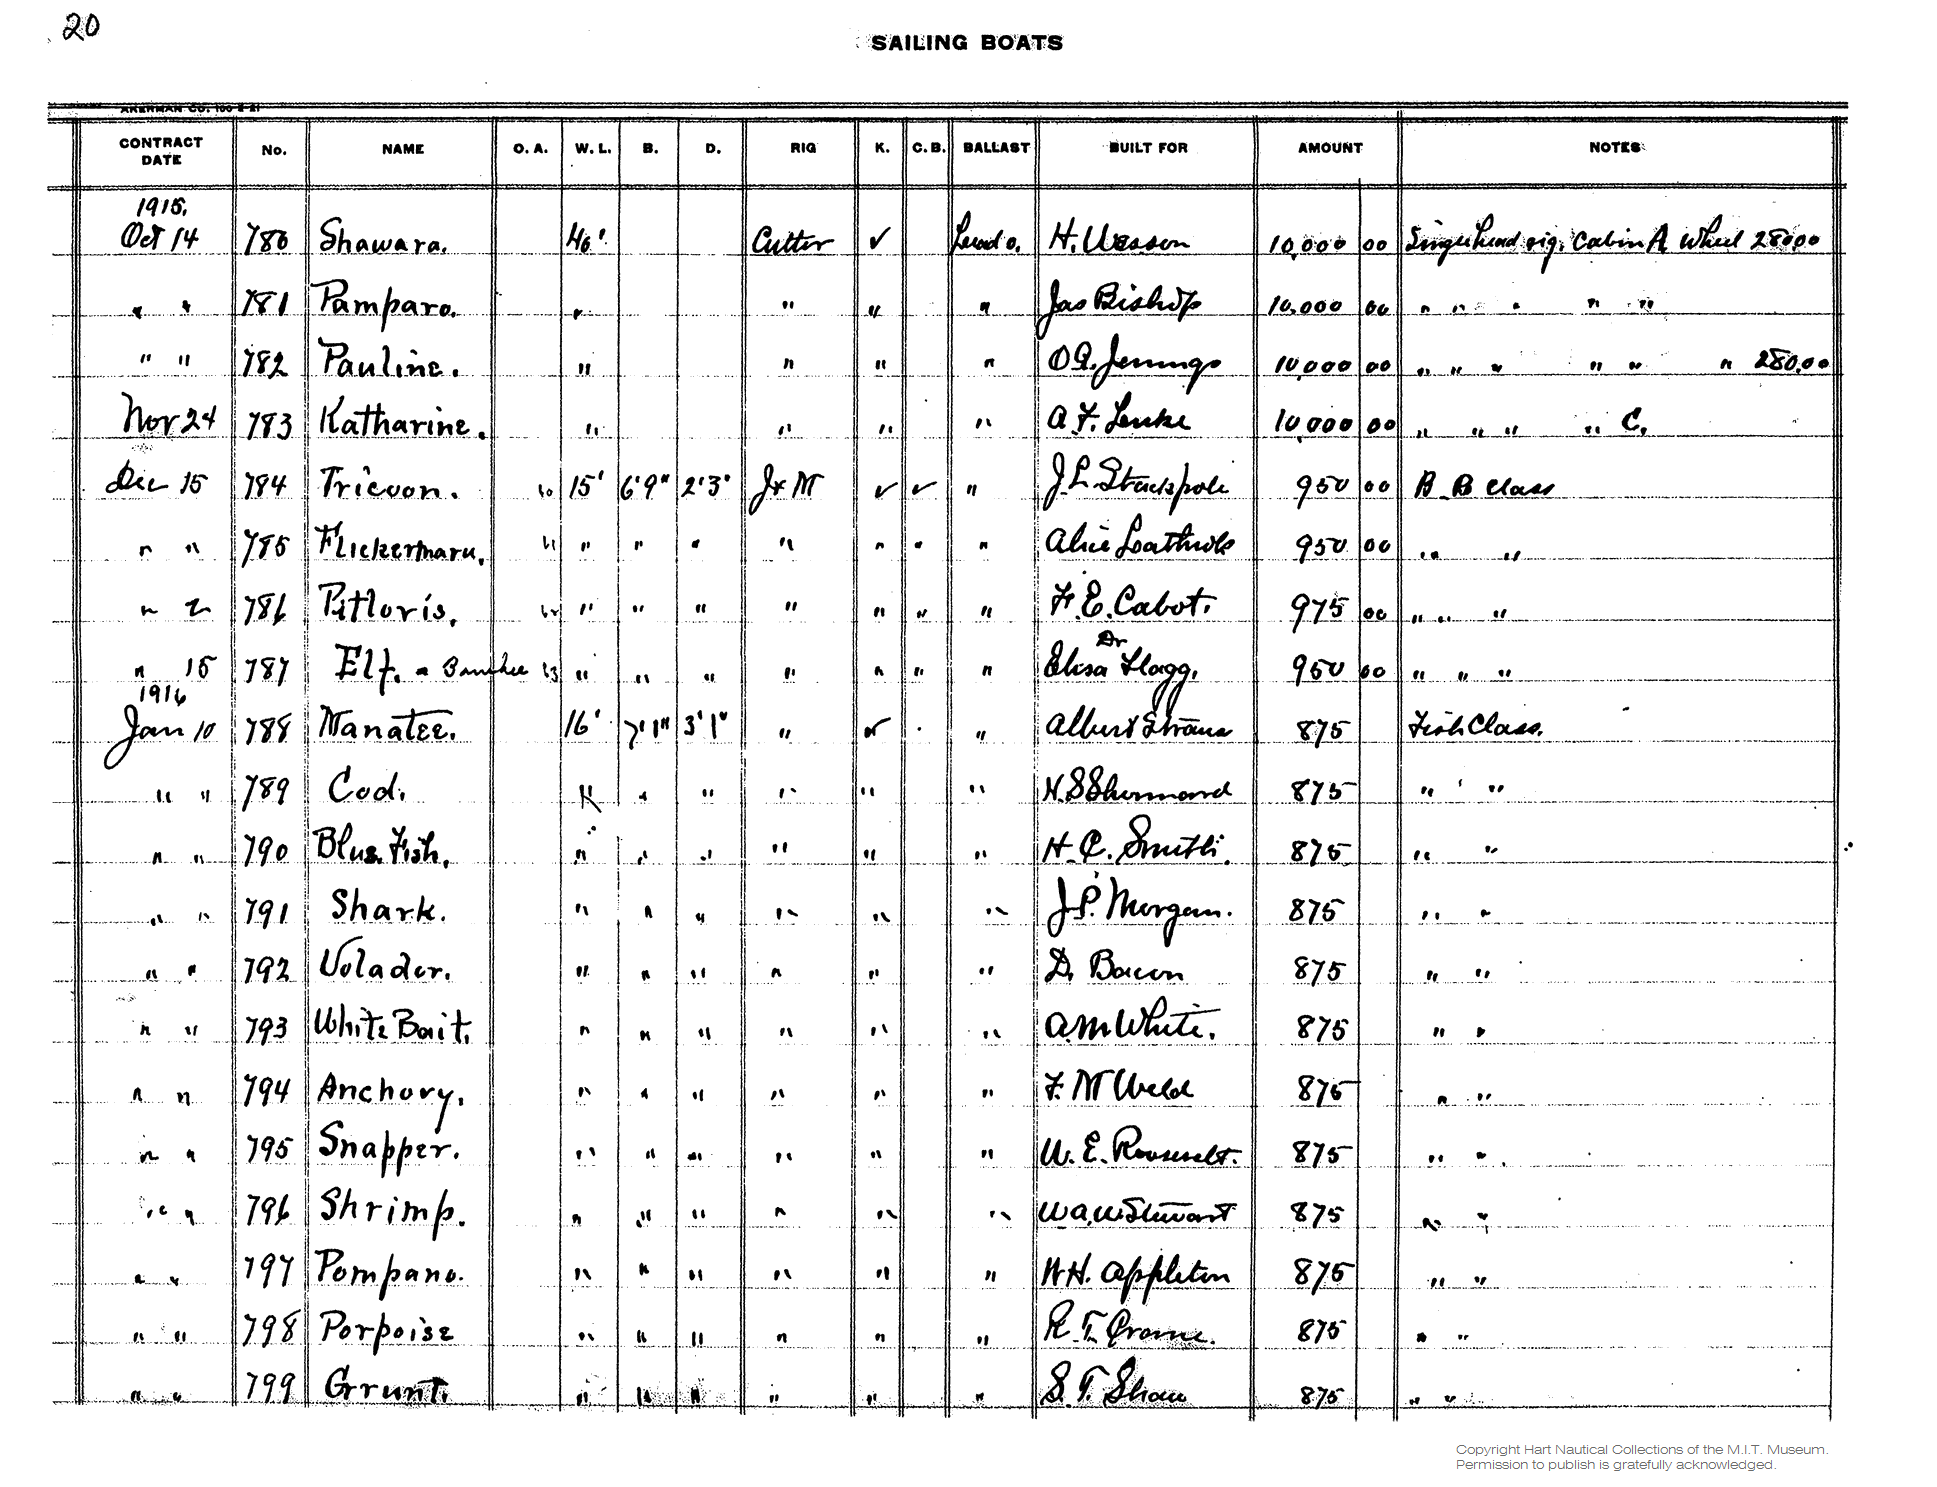 20
SAILING BOATS
AKERMAN CO. 100 2-21
CONTRACT DATE No. NAME O. A. W. L. B. D. RIG K. C. B. BALLAST BUILT FOR AMOUNT NOTES
1915.
Oct 14 780 Shawara. 46' Cutter ✓ Lead o. H. Wesson 10,000 00 Single head rig. Cabin A Wheel 280.00
" " 781 Pamparo. " " " " Jas Bishop 10,000 00 " " " " "
" " 782 Pauline. " " " " O.G. Jennings 10,000 00 " " " " " " 280.00
Nov 24 783 Katharine. " " " " A. F. Luke 10,000 00 " " " " C.
Dec 15 784 Tricoon. 60 15' 6'9" 2'3" J & M ✓ ✓ " J. L. Stackpole 950 00 B. B class
" " 785 Flickermaru. 61 " " " " " " " Alice 950 00 " "
" 2 786 Pitloris. 62 " " " " " " " F. E. Cabot. 975 00 " " "
" 15 787 Elf. a Banshee 63 " " " " " " " Elisa Dr Flagg. 950 00 " " "
1916
Jan 10 788 Manatee. 16' 7'1" 3'1" " ✓ " Albert Straus 875 Fish Class.
" " 789 Cod. " " " " " " H. S. Shonnard 875 " " "
" " 790 Blue Fish. " " " " " " H. C. Smith. 875 " "
" " 791 Shark. " " " " " " J. P. Morgan. 875 " "
" " 792 Volador. " " " " " " D. Bacon 875 " "
" " 793 White Bait. " " " " " " A. M White. 875 " "
" " 794 Anchovy. " " " " " " F. M Weld 875 " "
" " 795 Snapper. " " " " " " W. E. Roosevelt. 875 " "
" " 796 Shrimp. " " " " " " W. A. W. Stewart 875 " "
" " 797 Pompano. " " " " " " W H. Appleton 875 " "
" " 798 Porpoise " " " " " " R. T. Crane. 875 " "
" " 799 Grunt. " " " " " " S. T. Shaw 875 " "
Copyright Hart Nautical Collections of the M.I.T. Museum.
Permission to publish is gratefully acknowledged.